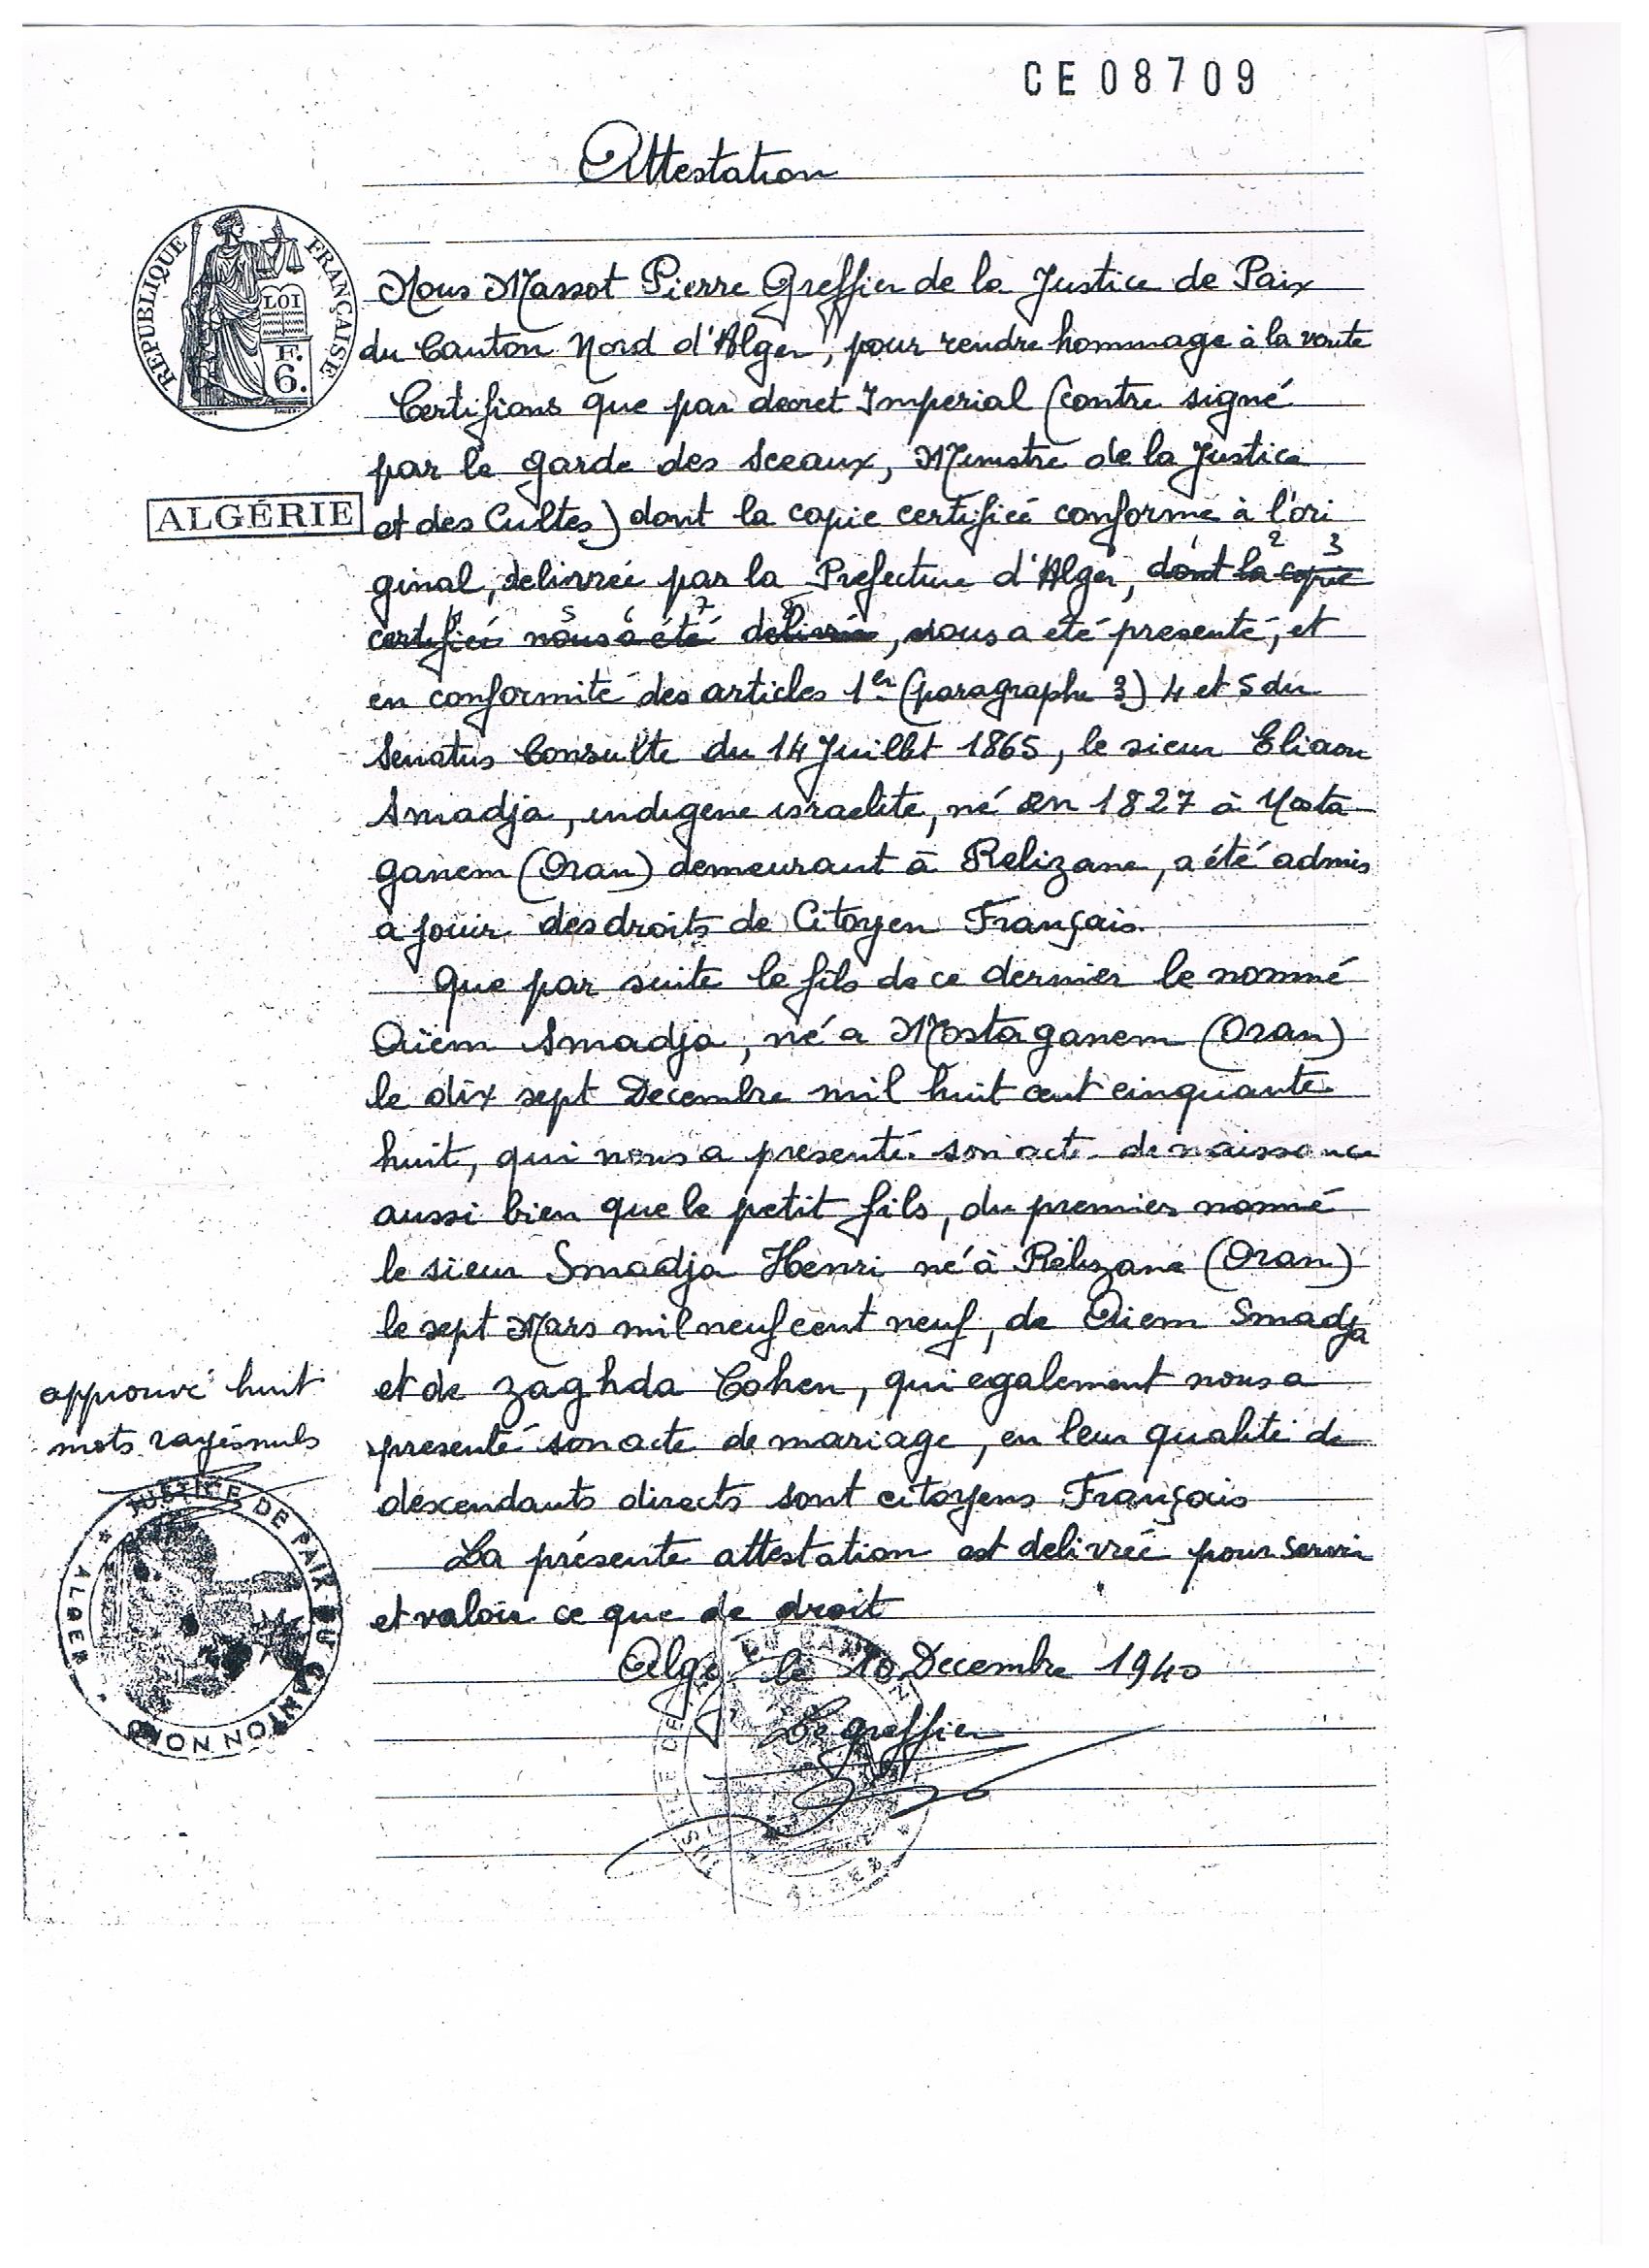 CE 08709
Attestation
REPUBLIQUE FRANÇAISE
LOI
F.
6.
Nous Massot Pierre Greffier de la Justice de Paix
du Canton Nord d'Alger, pour rendre hommage à la verite
Certifions que par decret Imperial (contre signé
par le garde des sceaux, Ministre de la Justice
ALGÉRIE
et des Cultes) dont la copie certifieé conforme à l'ori
ginal, delivreé par la Prefecture d'Alger, dont la copie
certifieé nous a été delivrée, nous a eté presenté, et
en conformité des articles 1er (paragraphe 3) 4 et 5 du
Senatus Consulte du 14 Juillet 1865, le sieur Eliaou
Smadja, indigene israelite, né en 1827 à Mosta
ganem (Oran) demeurant à Relizane, a été admis
a jouir des droits de Citoyen Français.
Que par suite le fils de ce dernier le nommé
Qiem Smadja, né a Mostaganem (Oran)
le dix sept Decembre mil huit cent cinquante
huit, qui nous a presenté son acte de naissance
aussi bien que le petit fils, du premier nommé
le sieur Smadja Henri né à Rélizane (Oran)
le sept Mars mil neuf cent neuf, de Qiem Smadja
et de Zaghda Cohen, qui egalement nous a
presenté son acte de mariage, en leur qualité de
descendants directs sont citoyens Français
La présente attestation est delivreé pour servir
et valoir ce que de droit
Alger le 10 Decembre 1940
Le greffier
approuvé huit
mots rayés nuls
JUSTICE DE PAIX DU CANTON NORD
* ALGER *